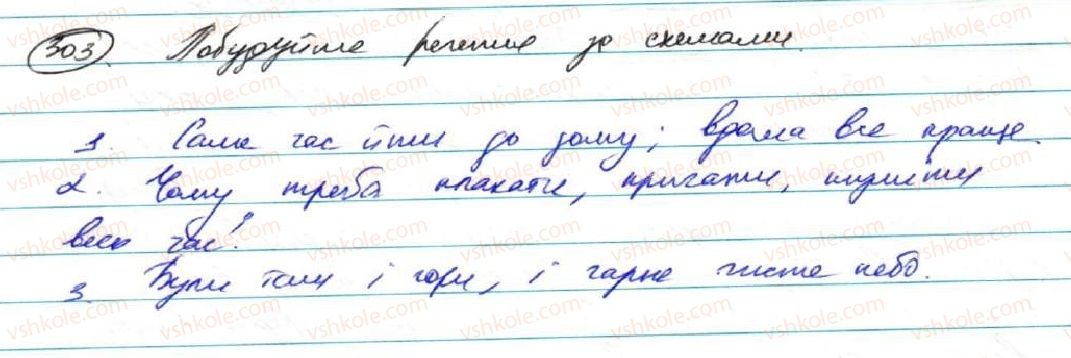 303. Побудуйте речення за схемами.
1. Саме час йти до дому; вдома все краще.
2. Чому треба плакати, кричати, шуміти
весь час?
3. Були там і гори, і гарне чисте небо.